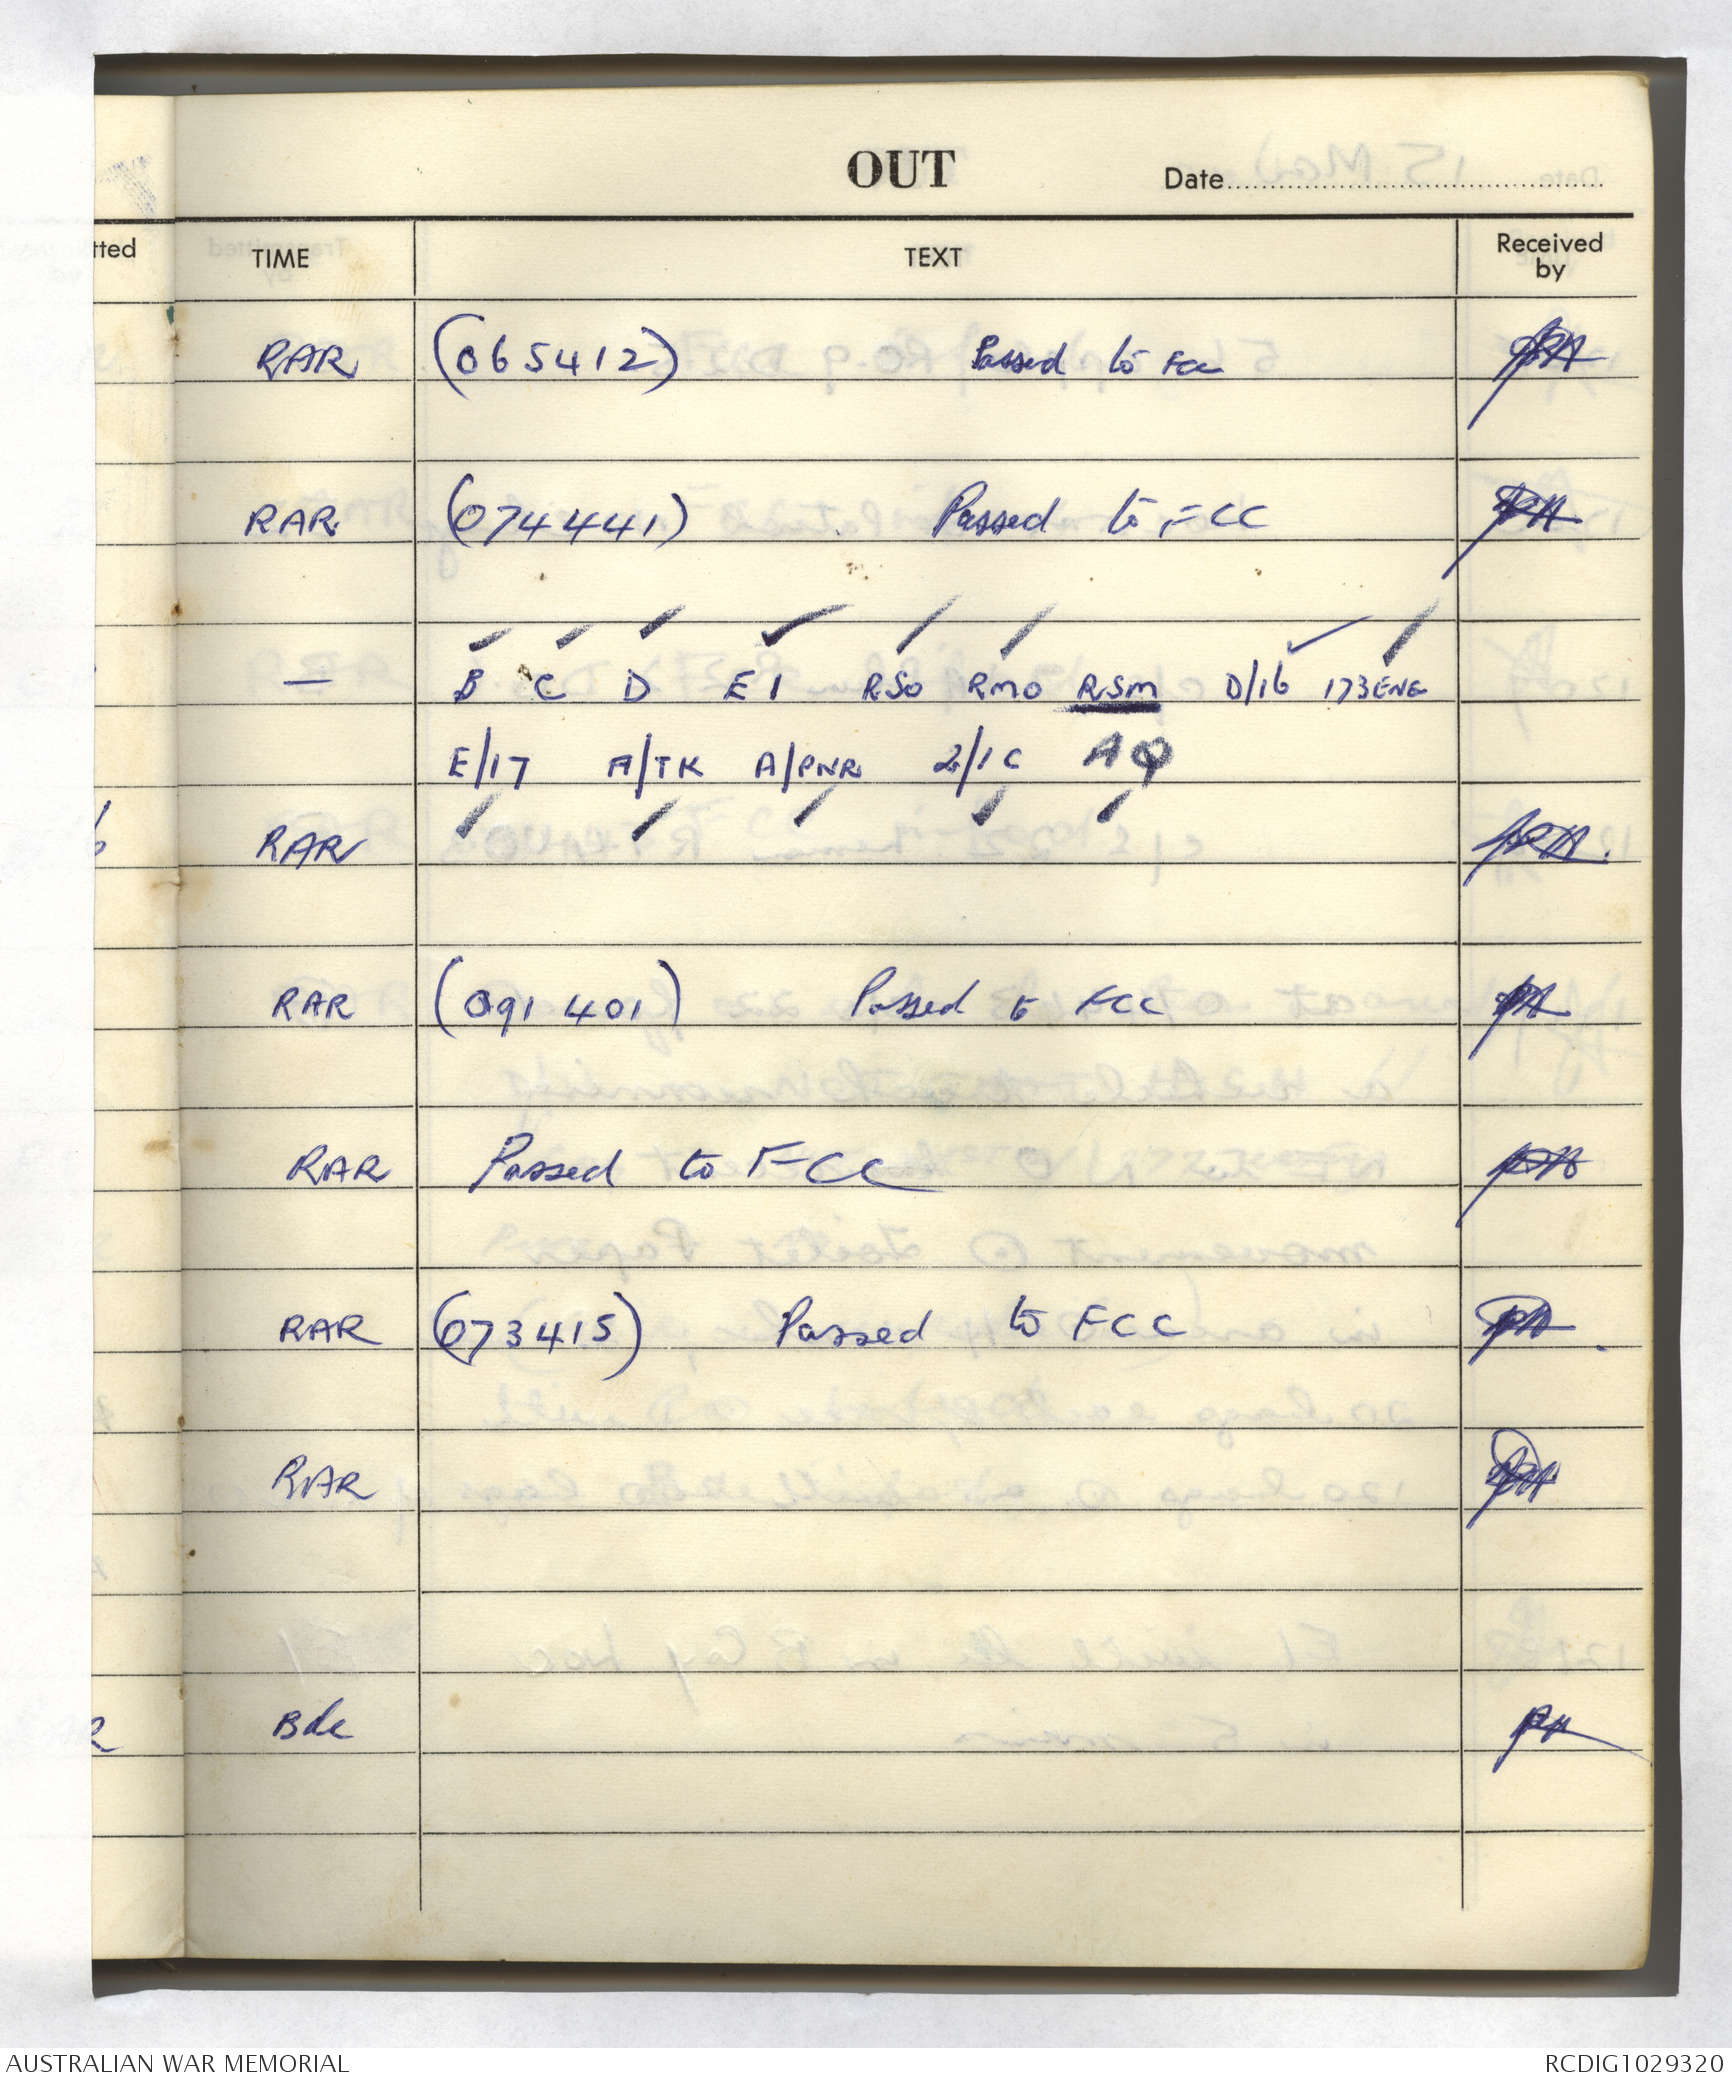 OUT Date
tted TIME TEXT Received by
RAR (065412) Passed to FCC
RAR (074441) Passed to FCC
— B C D E1 RSO RMO RSM D/16 173ENG
E/17 A/TK A/PNR 2/1C AQ
RAR
RAR (091401) Passed to FCC
RAR Passed to FCC
RAR (073415) Passed to FCC
RAR
Bde
AUSTRALIAN WAR MEMORIAL RCDIG1029320